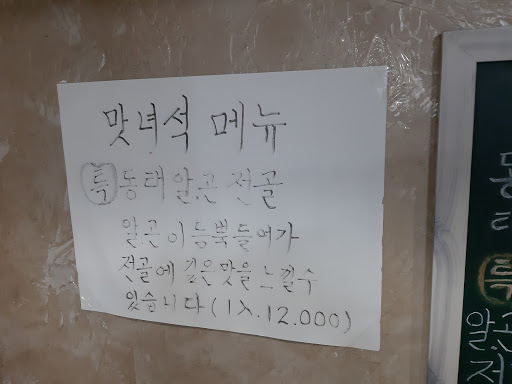 맛녀석 메뉴
특 동태알곤 전골
알곤이 듬뿍들어가
전골에 깊은맛을 느낄수
있습니다(1人.12.000)
동